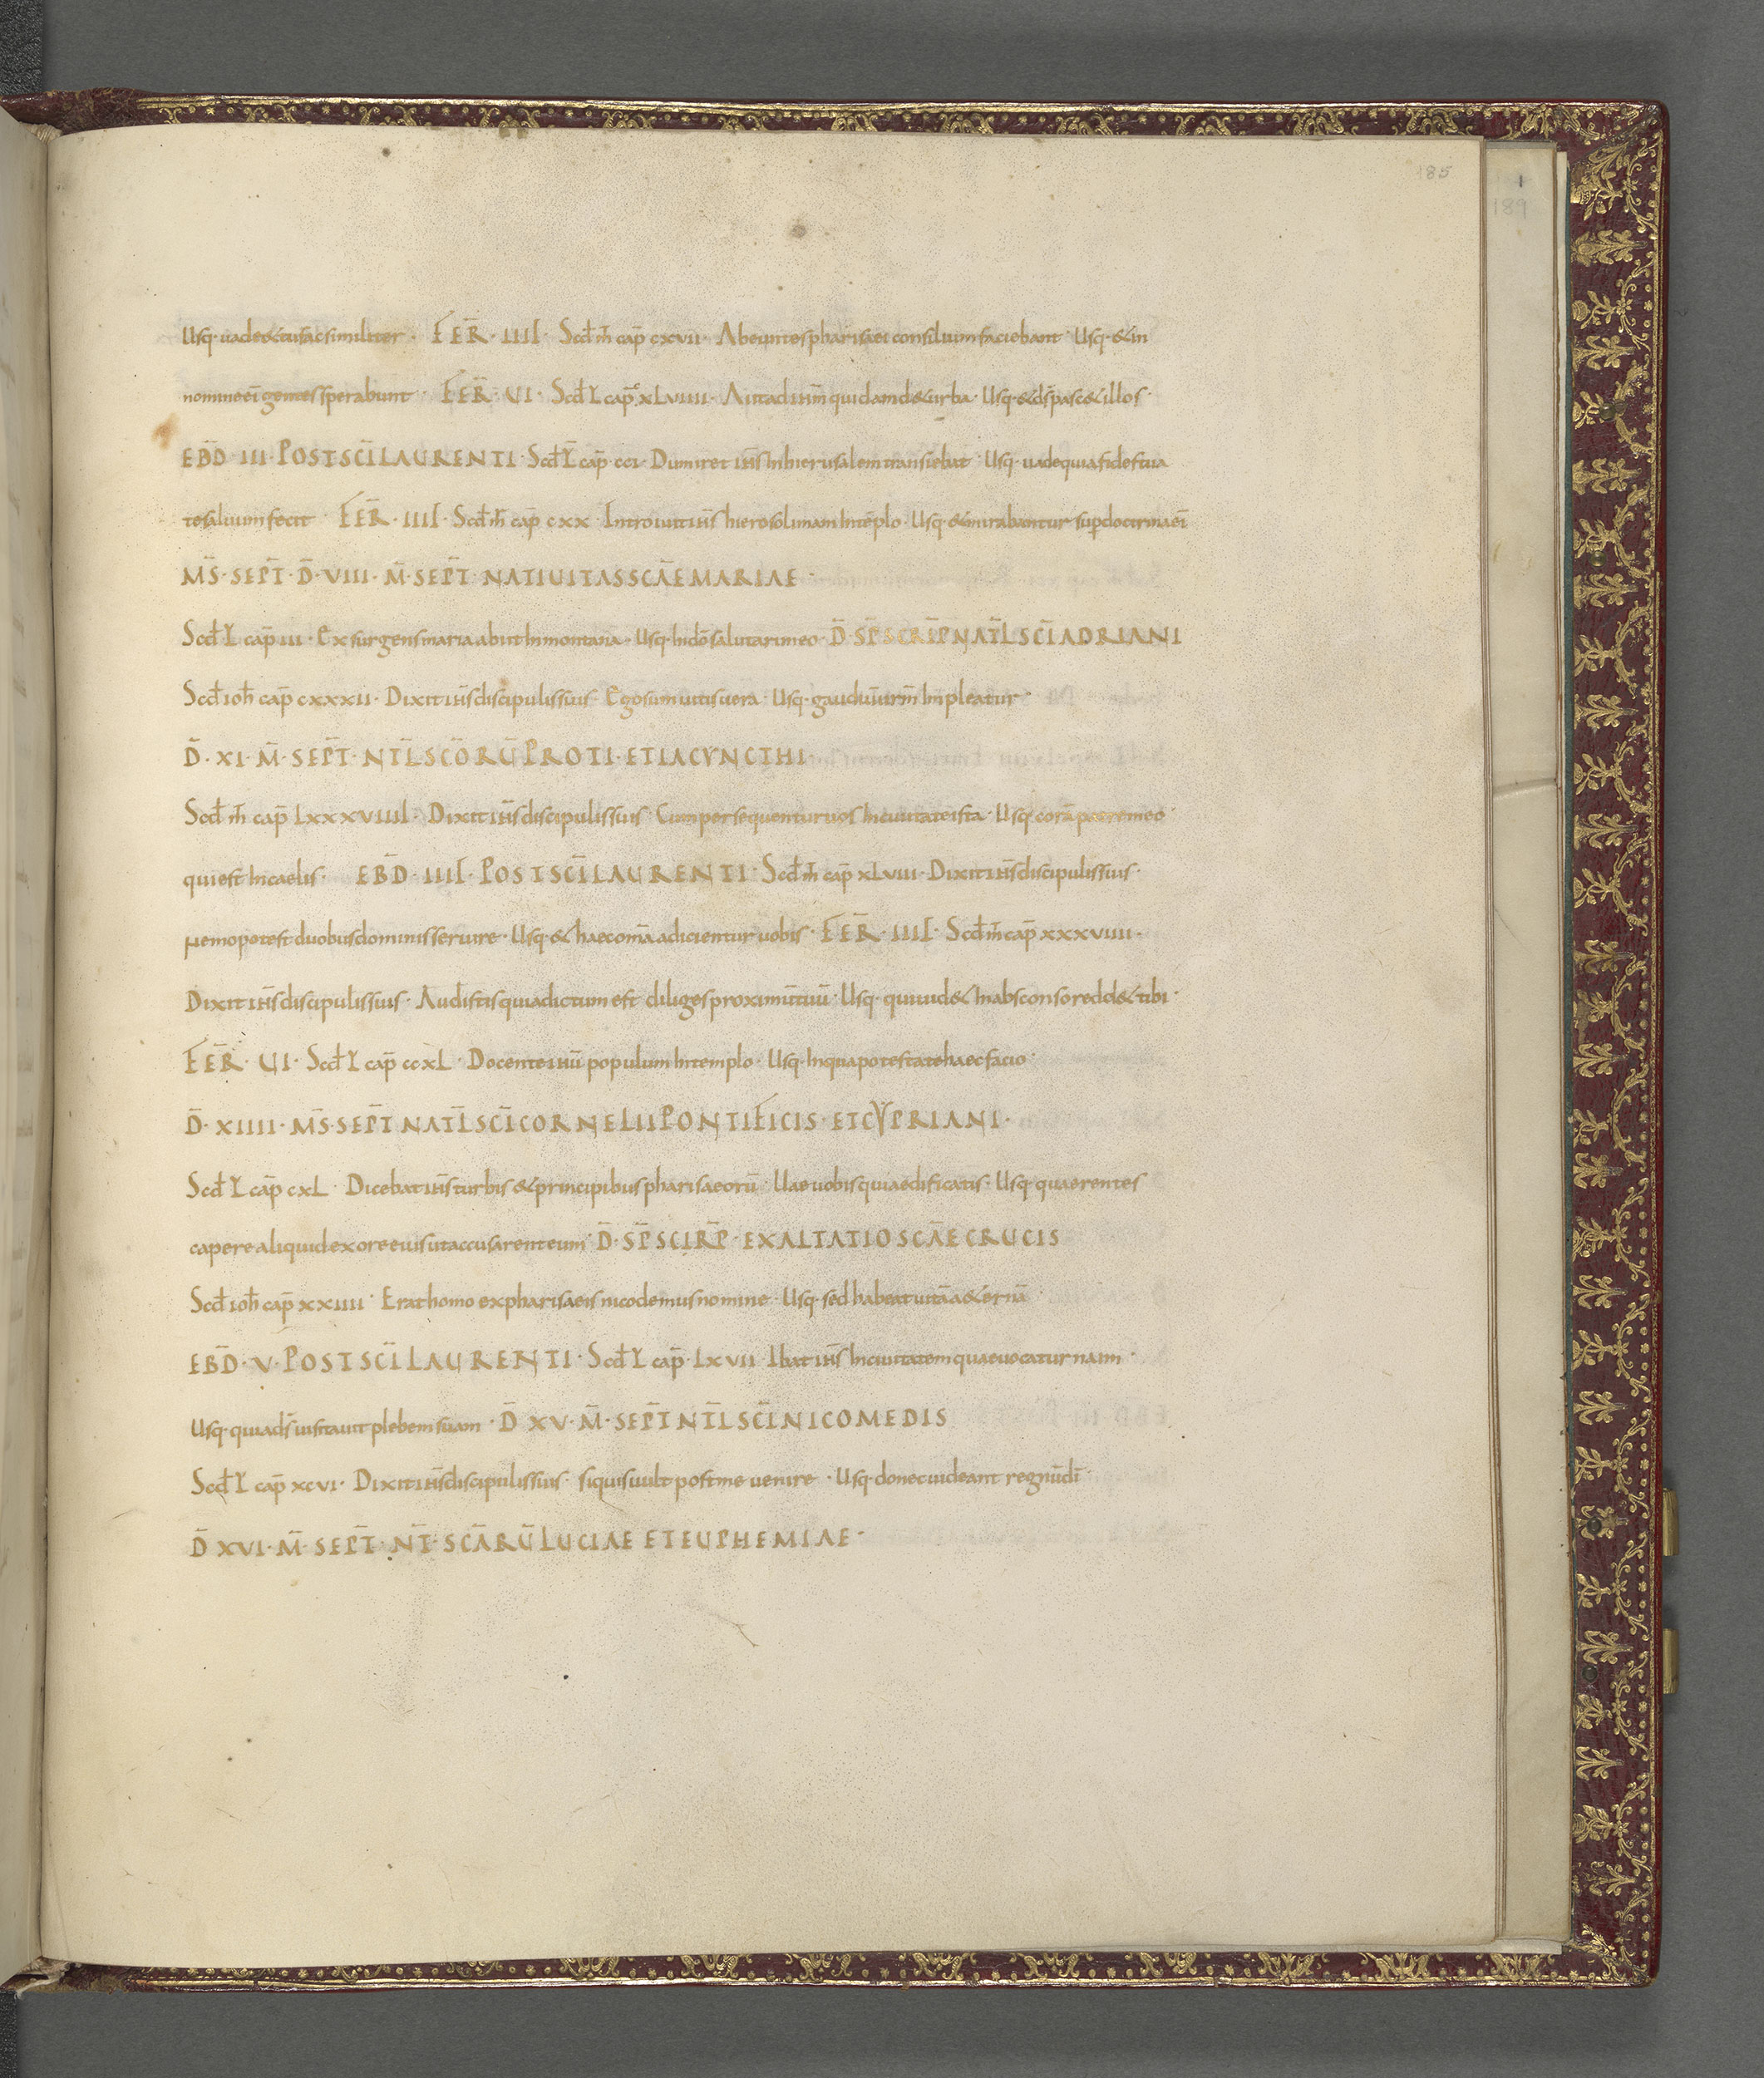 185
1
189
Usq· uade&tufacsimiliter · FER̄ · IIII · Scd̄ m̄ cap̄ cxvii · Abeuntespharisaei consiliumfaciebant · Usq· &in
nomineei̅ gentessperabunt · FER̄ · VI · Scd̄ L cap̄ xLviiii · Aitadih̅m quidamd&urba · Usq· &ds̅pasc&illos ·
EBD̄ · III · POSTSC̄ILAURENTI · Scd̄ L cap̄ · cci · Dumiret ih̅s Inhierusalemtransiebat · Usq· uadequiafidestua
tesaluumfecit · FER̄ · IIII · Scd̄ m̄ cap̄ cxx · Introiuitih̅s hierosolimamIntēplo · Usq· &mirabantur sup̄doctrinaei̅
M̄S · SEPT̄ · D̄ · VIII · M̄ · SEPT̄ · NATIUITASSCĀEMARIAE ·
Scd̄ L cap̄ iii · Exsurgensmariaabiit Inmontana · Usq· Indōsalutarimeo · D̄ · SP̄SCRIP̄NAT̄LSC̄IADRIANI
Scd̄ ioh̄ cap̄ cxxxii · Dixitih̅sdiscipulissuis · Egosumuitisuera · Usq· gaudiūurm̄ Impleatur ·
D̄ · XI · M̄ · SEPT̄ · NT̄LSCŌRŪPROTI · ETIACYNCTHI ·
Scd̄ m̄ cap̄ Lxxxviiii · Dixitih̅sdiscipulissuis · Cumpersequenturuos Inciuitateista · Usq· corāpatremeo ·
quiest Incaelis · EBD̄ · IIII · POSTSC̄ILAURENTI · Scd̄ m̄ cap̄ xLviii · Dixitih̅sdiscipulissuis ·
Nemopotestduobusdominisseruire · Usq· &haecomā adicienturuobis · FER̄ · IIII · Scd̄ m̄ cap̄ xxxviiii ·
Dixitih̅sdiscipulissuis · Audistisquiadictumest diligesproximūtuū · Usq· quiuid&Inabsconsoredd&tibi ·
FER̄ · VI · Scd̄ L cap̄ ccxL · Docenteih̅u populumIntemplo · Usq· Inquapotestatehaecfacio ·
D̄ · XIIII · M̄S · SEPT̄ NAT̄LSC̄ICORNELIIPONTIFICIS · ETCYPRIANI ·
Scd̄ L cap̄ cxL · Dicebatih̅sturbis&principibuspharisaeorū · Uaeuobisquiaedificatis · Usq· quaerentes
capere aliquidexoreeuisutaccusarenteum · D̄ · SP̄SCIRP̄ · EXALTATIOSCĀECRUCIS
Scd̄ ioh̄ cap̄ xxiiii · Erathomo expharisaeisnicodemusnomine · Usq· sedhabeatuitāa&ernā ·
EBD̄ · V · POSTSC̄ILAURENTI · Scd̄ L cap̄ · Lxvii · Ibatih̅s Inciuitatemquaeuocaturnaim ·
Usq· quiads̅ uisitauit plebemsuam · D̄ XV · M̄ · SEPT̄ NT̄LSC̄INICOMEDIS
Scd̄ L cap̄ xcvi · Dixitih̅sdiscipulissuis · siquisuult postme uenire · Usq· donecuideant regnūdi̅ ·
D̄ XVI · M̄ · SEPT̄ · NT̄ · SCĀRŪLUCIAE ETEUPHEMIAE ·